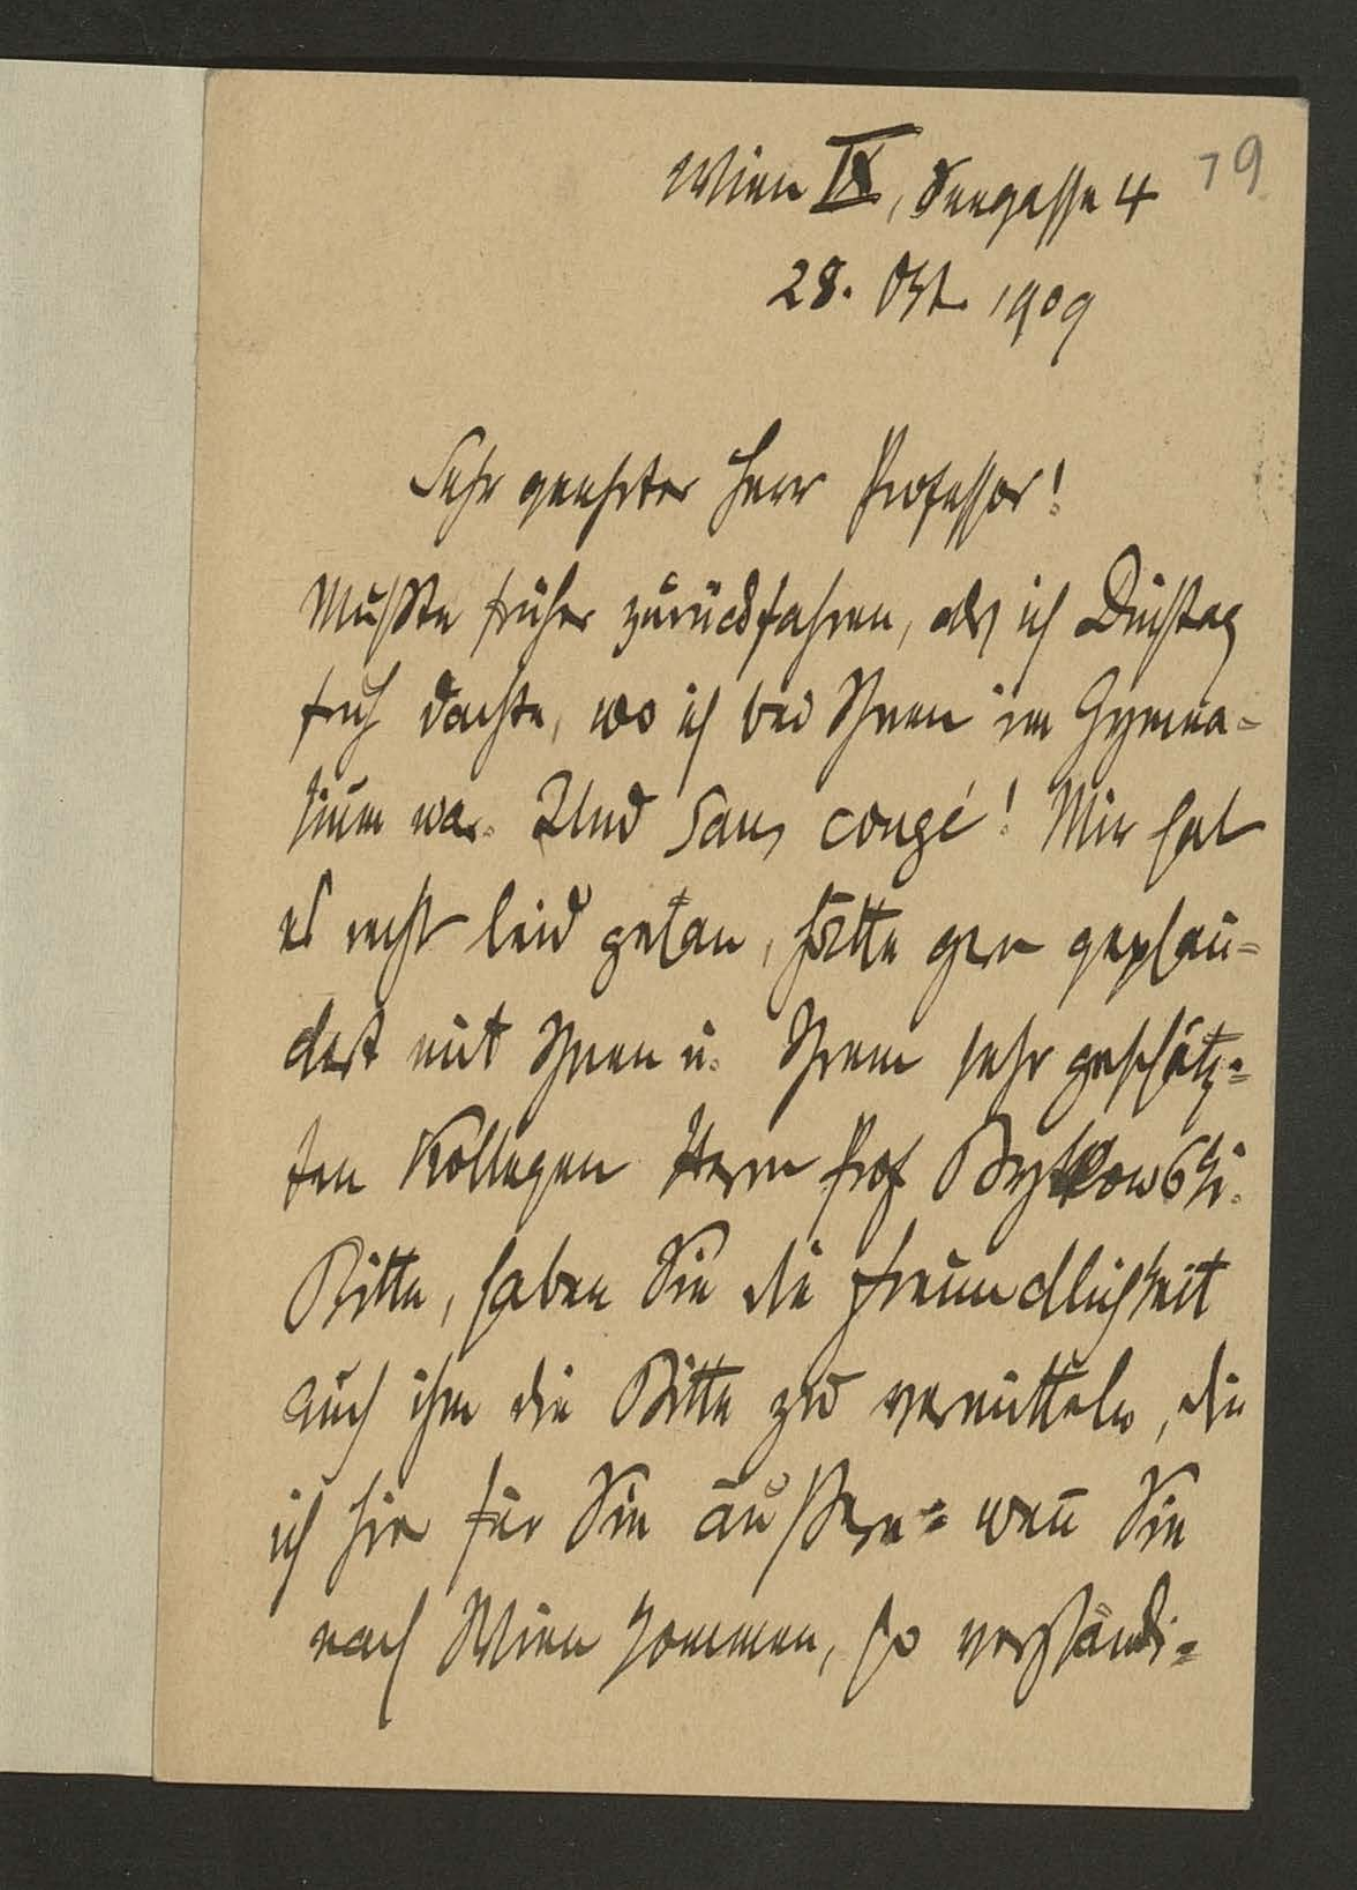 79
Wien IX, Seegasse 4
28. Okt. 1909
Sehr geehrter Herr Professor!
Mußte früher zurückfahren, als ich Dinstag
früh dachte, wo ich bei Ihnen im Gymna-
sium war. Und sans congé! Mir hat
es recht leid getan, hätte gern geplau-
dert mit Ihnen u. Ihrem sehr geschätz-
ten Kollegen Herrn Prof Bykowski.
Bitte, haben Sie die Freundlichkeit
auch ihm die Bitte zu vermitteln, die
ich hier für Sie äußere: wen̄ Sie
nach Wien kommen, so verständi-